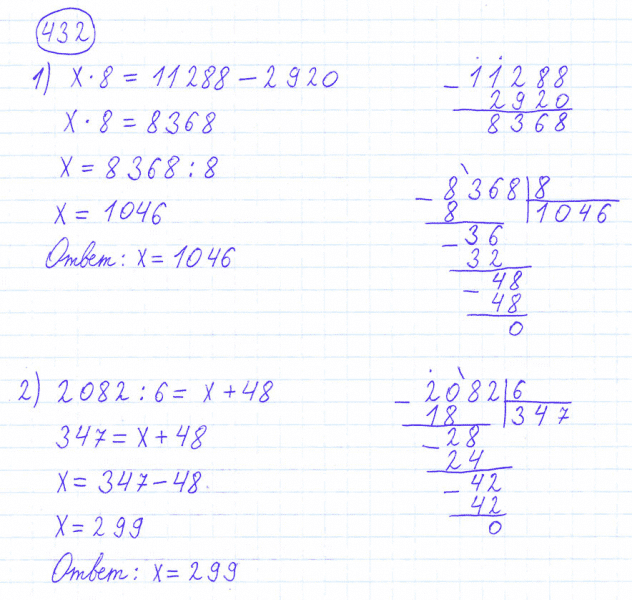 432
1) x · 8 = 11288 − 2920
x · 8 = 8368
x = 8368 : 8
x = 1046
Ответ: x = 1046
− 11288
2920
8368
− 8368 | 8
8 | 1046
− 36
32
− 48
48
0
2) 2082 : 6 = x + 48
347 = x + 48
x = 347 − 48
x = 299
Ответ: x = 299
− 2082 | 6
18 | 347
− 28
24
− 42
42
0